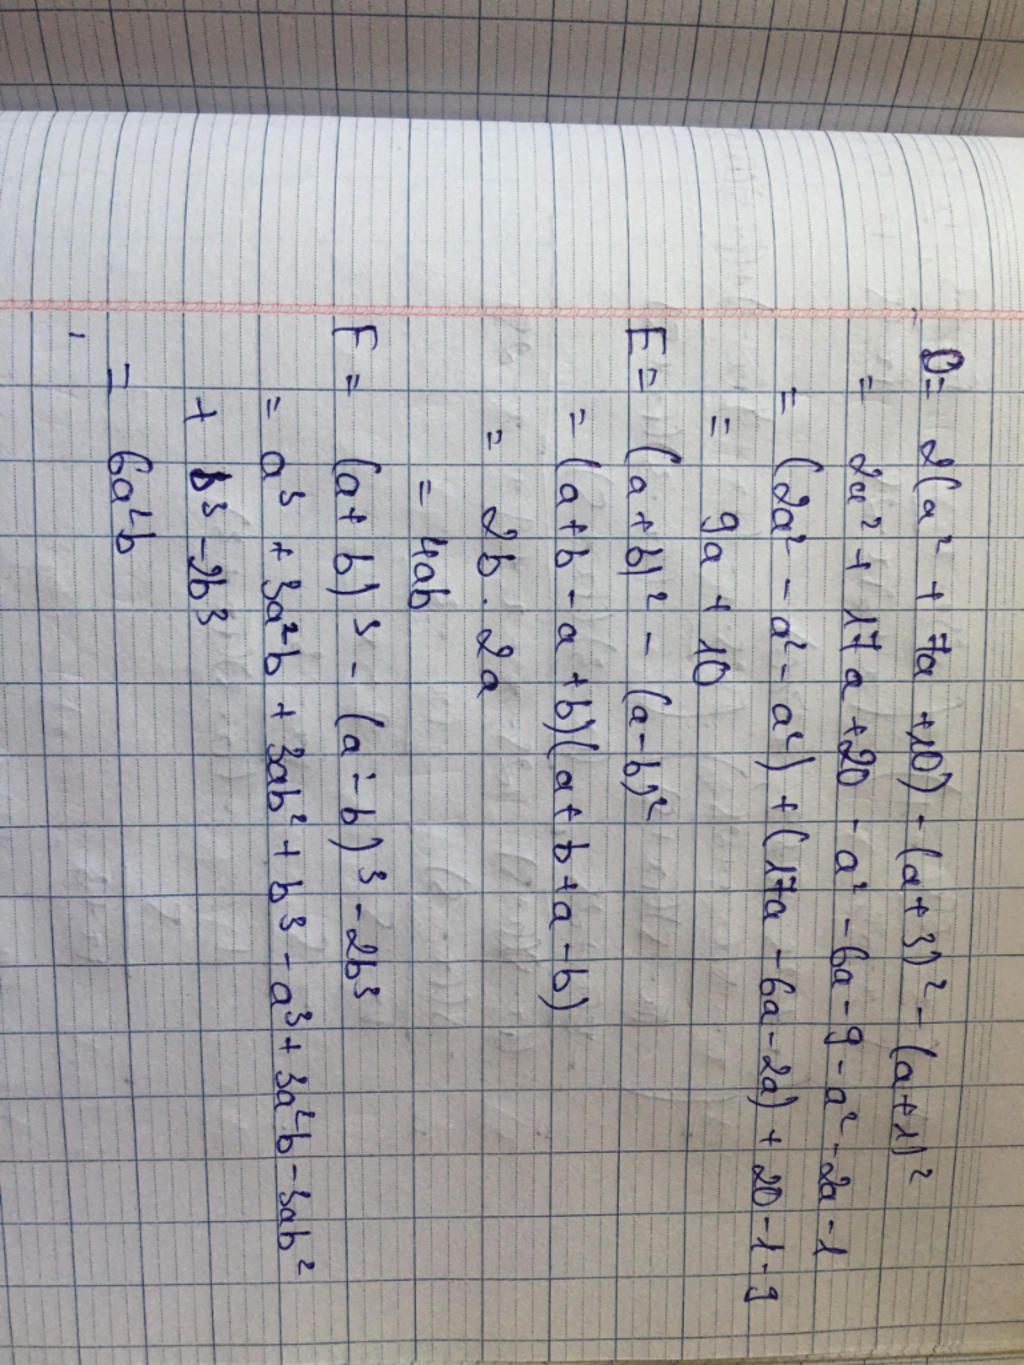 D = 2(a² + 7a + 10) - (a+3)² - (a+1)²
= 2a² + 17a + 20 - a² - 6a - 9 - a² - 2a - 1
= (2a² - a² - a²) + (17a - 6a - 2a) + 20 - 1 - 9
= 9a + 10
E = (a + b)² - (a - b)²
= (a + b - a + b)(a + b + a - b)
= 2b . 2a
= 4ab
F = (a + b)³ - (a - b)³ - 2b³
= a³ + 3a²b + 3ab² + b³ - a³ + 3a²b - 3ab²
+ b³ - 2b³
= 6a²b